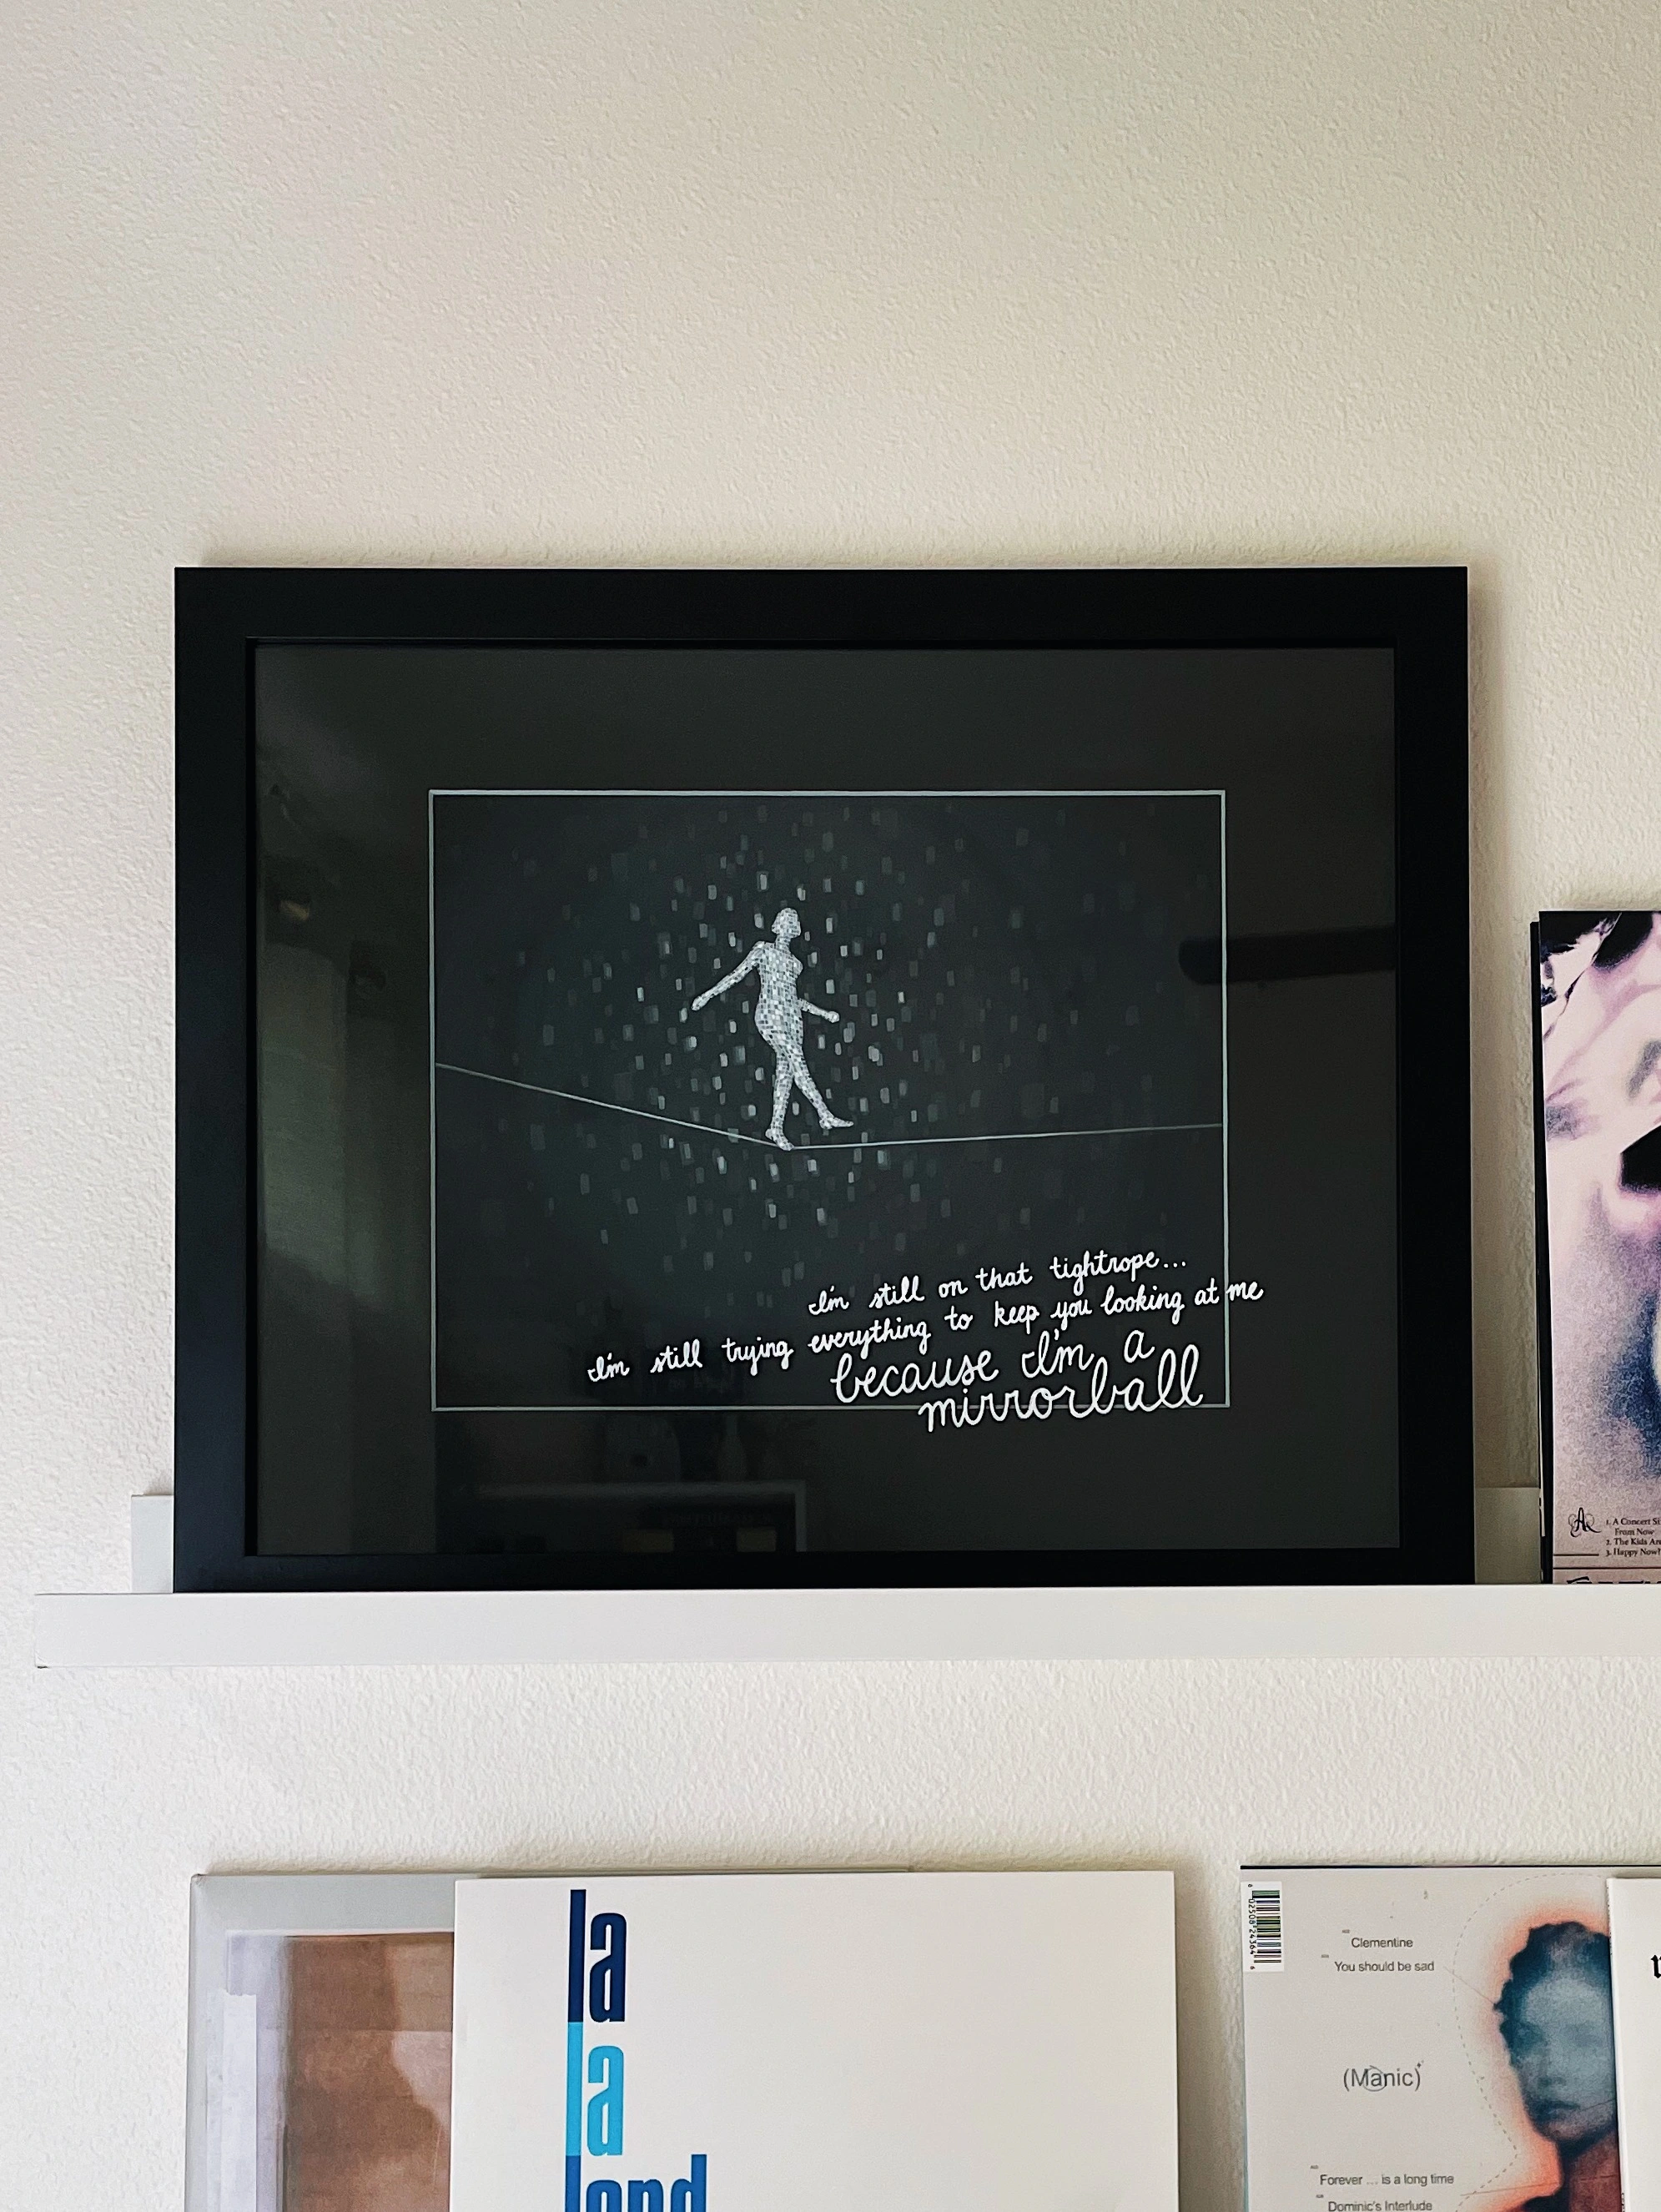 I'm still on that tightrope...
I'm still trying everything to keep you looking at me
because I'm a
mirrorball
1. A Concert
From Now
2. The Kids
3. Happy Now?
la
la
land
Clementine
You should be sad
(Manic)
Forever ... is a long time
Dominic's Interlude